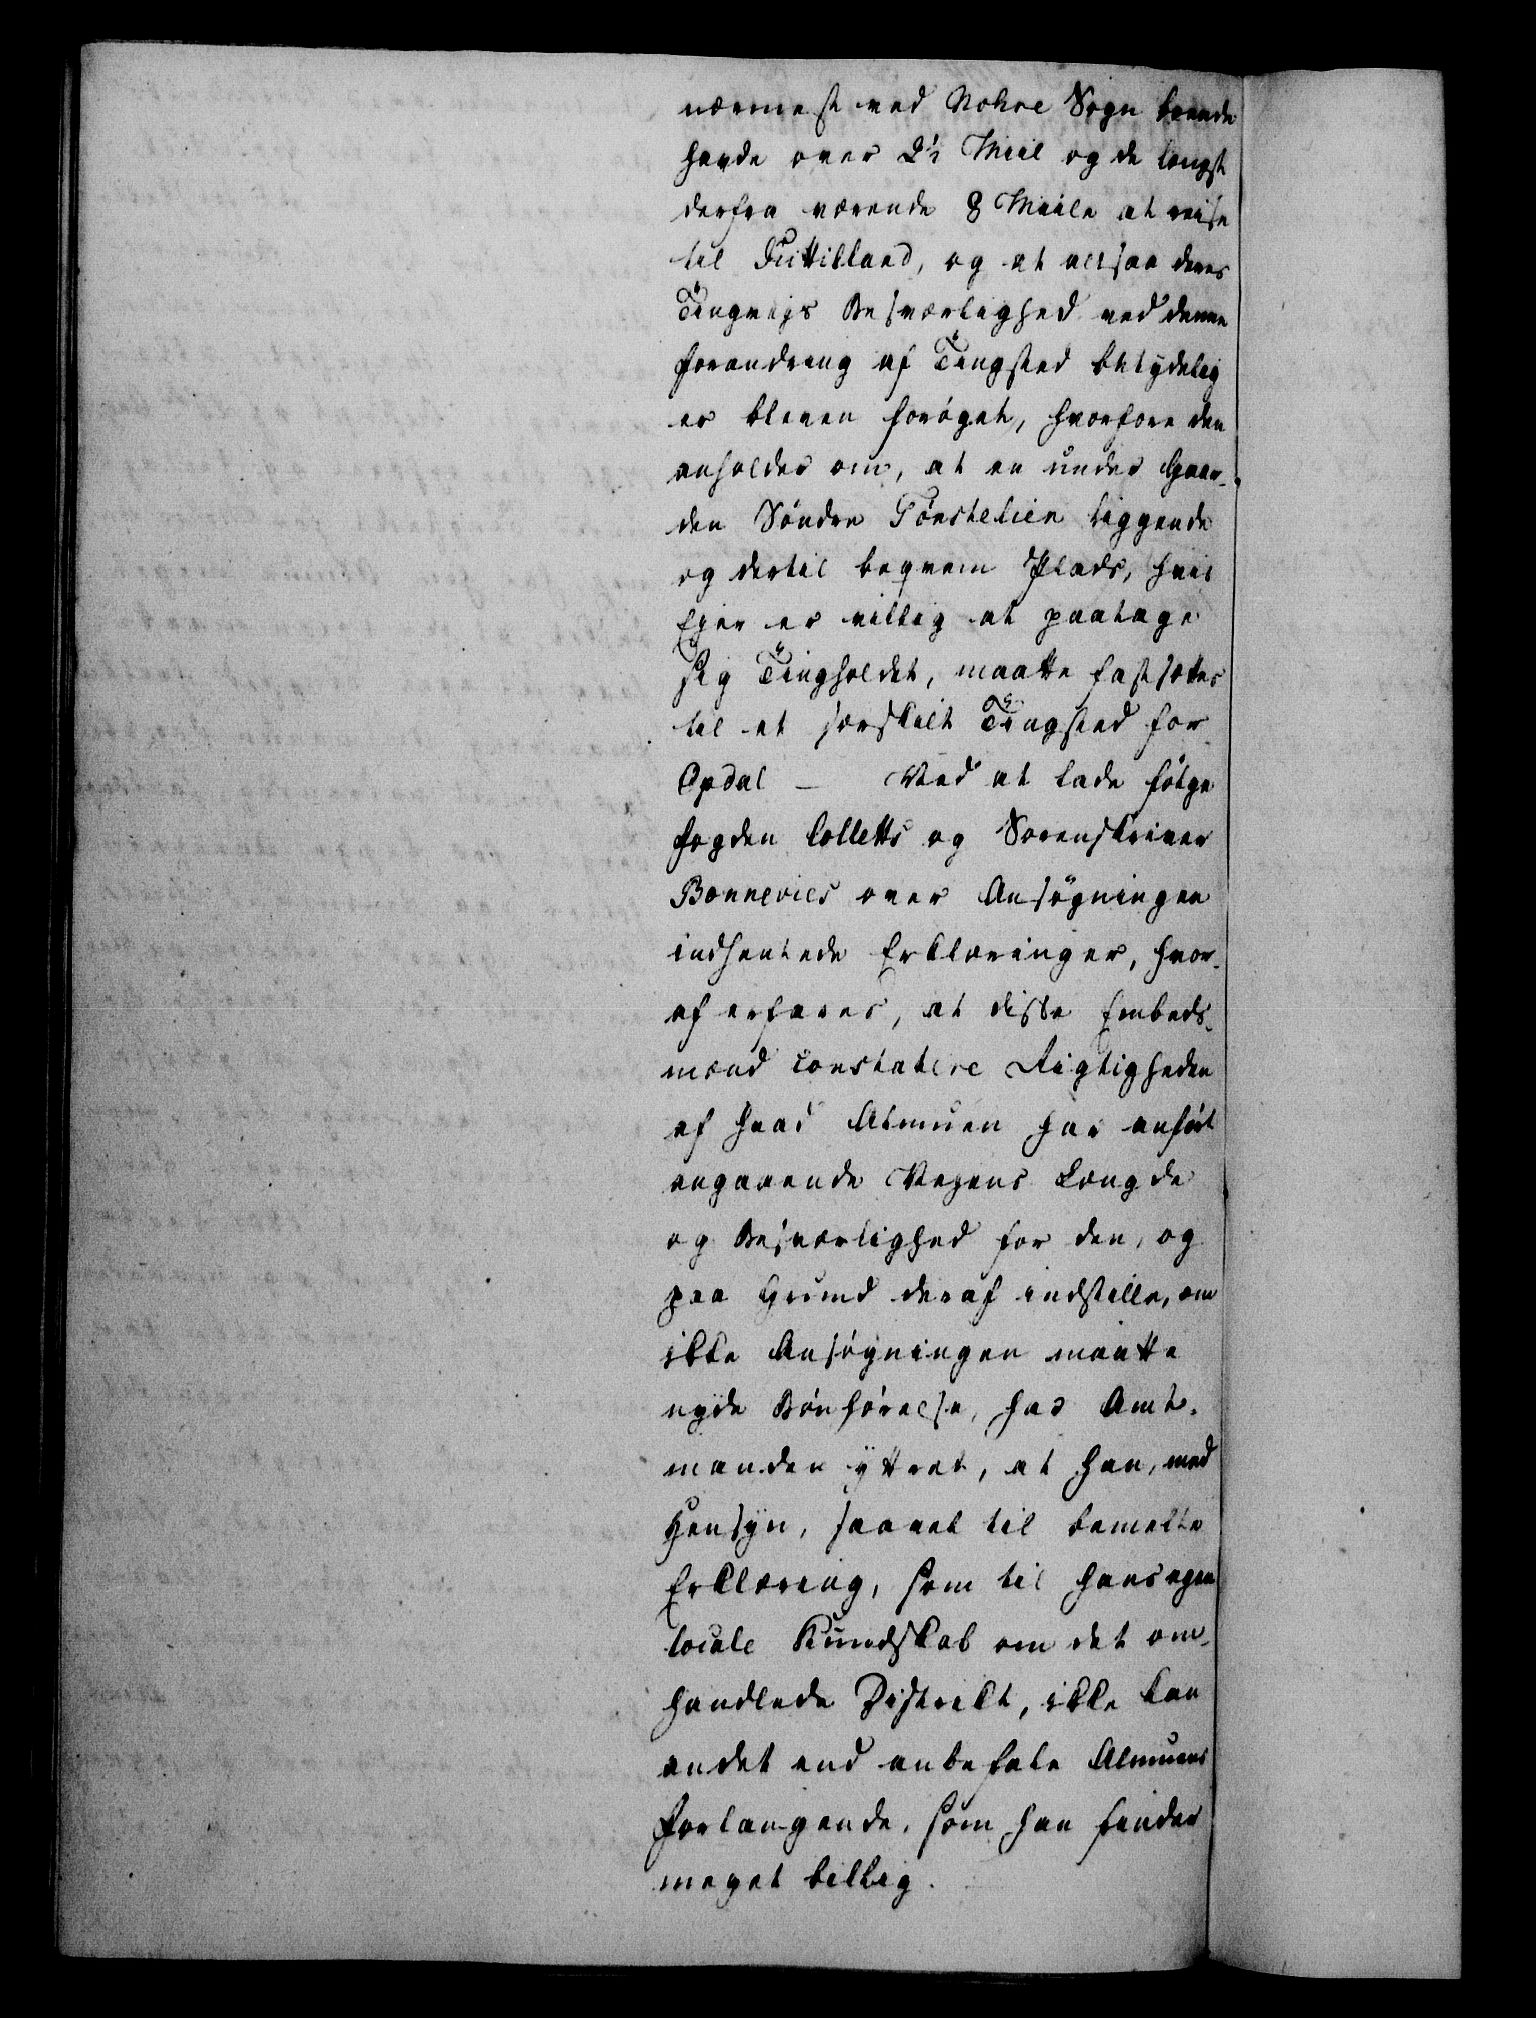 nærmest ved Nohre Sogn boende
havde over 2½ Miil og de længst
derfra værende 8 Miile at reise
til Guttilland, og at altsaa deres
Tingreises Besværlighed ved denne
Forandring af Tingsted betydelig
er bleven forøget, hvorfore den
anholder om, at en under Gaar-
den Søndre Tørstelien liggende
og dertil beqvem Plads, hvis
Ejer er villig at paatage
sig Tingholdet, maatte fastsættes
til et særskilt Tingsted for
Opdal — Ved at lade følge
Fogden Colletts og Sorenskriver
Bonnevies over Ansøgningen
indhentede Erklæringer, hvor-
af erfares, at disse Embeds-
mænd constatere Rigtigheden
af hvad Almuen har anført
angaaende Vejens Længde
og Besværlighed for den, og
paa Grund deraf indstille, om
ikke Ansøgningen maatte
nyde Bønhørelse, har Amt-
manden yttret, at han, med
Hensyn, saavel til bemeldte
Erklæring, som til hans egen
locale Kundskab om det om-
handlede District, ikke kan
andet end anbefale Almuens
Forlangende, som han finder
meget billig.